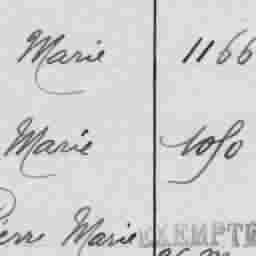 Marie 1166
Marie
Pierre Marie EXEMPTÉ